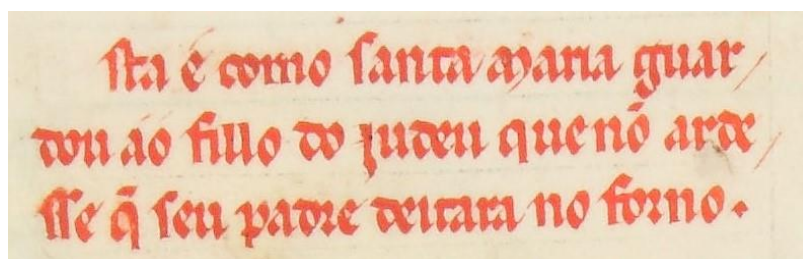 sta é como santa maria guar/
dou ao fillo do judeu que nõ arde/
sse q̃ seu padre deitara no forno.